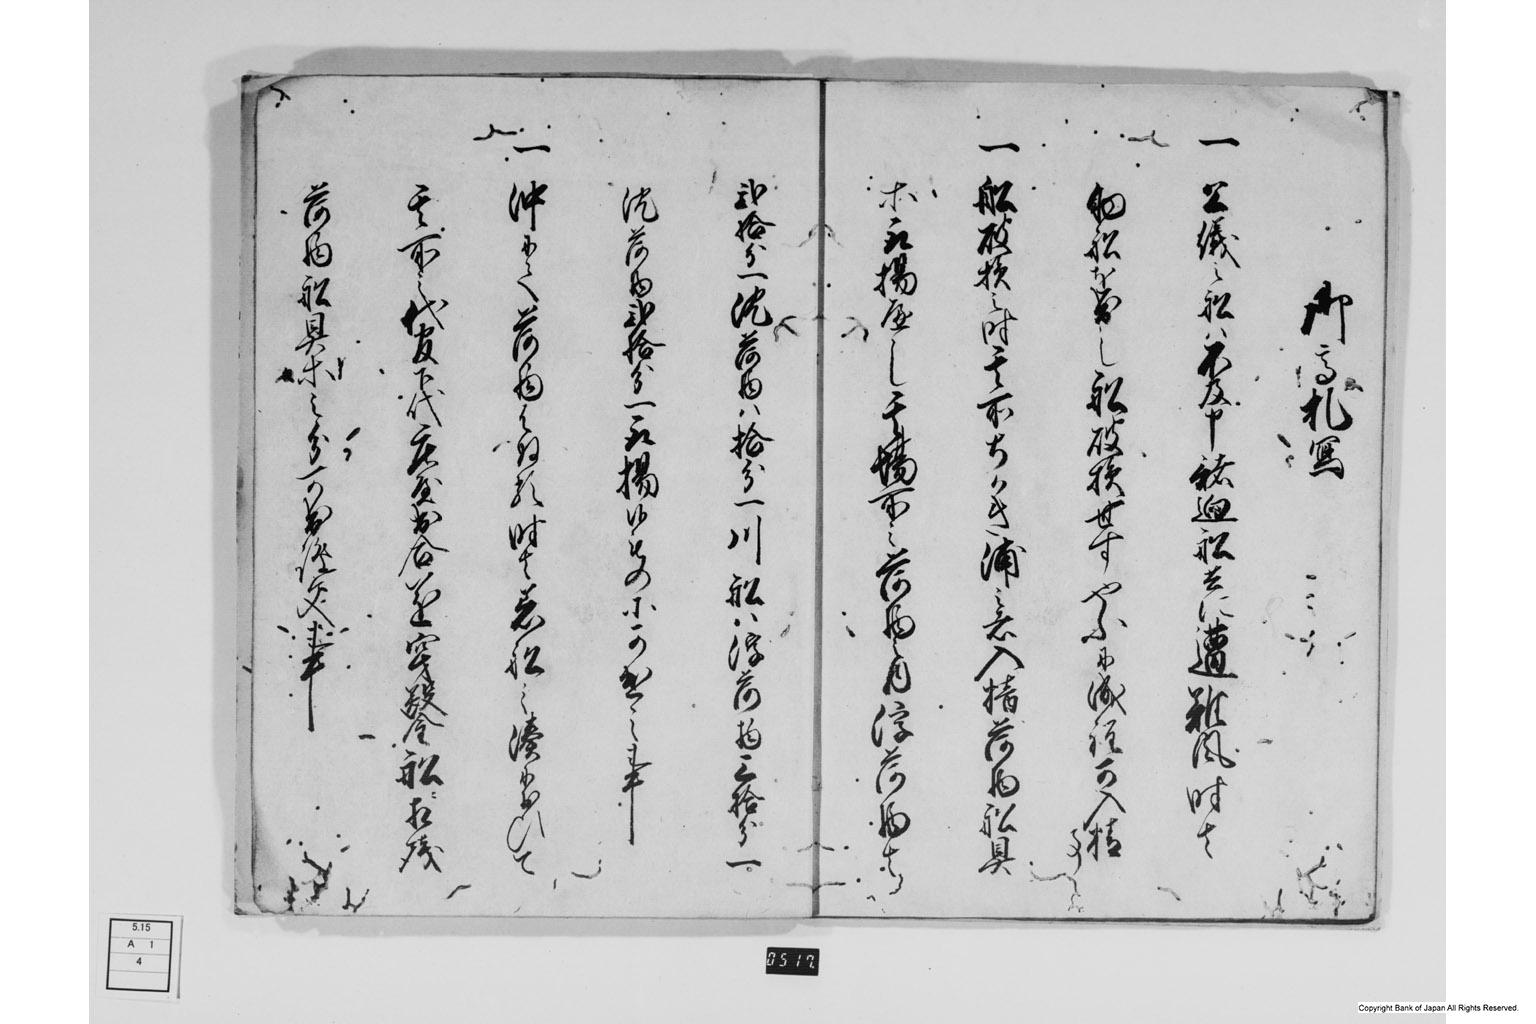 御高札写
一 公儀之船ハ不及申諸廻船共ニ遭難風時者
助船を出し船破損せすやうに成程可入精事
一 船破損之時其所ちかき浦之者入精荷物船具
等取揚へし其場所之荷物之内浮荷物者
弐拾分一沈荷物ハ拾分一川船ハ浮荷物三拾分一
沈荷物弐拾分一取揚候者ニ可遣之事
一 沖にて荷物はね候時者着船之湊におひて
其所之代官下代庄屋出合遂穿鑿船ニ相残
荷物船具等之分可出証文事
5.15
A 1
4
0517
Copyright Bank of Japan All Rights Reserved.